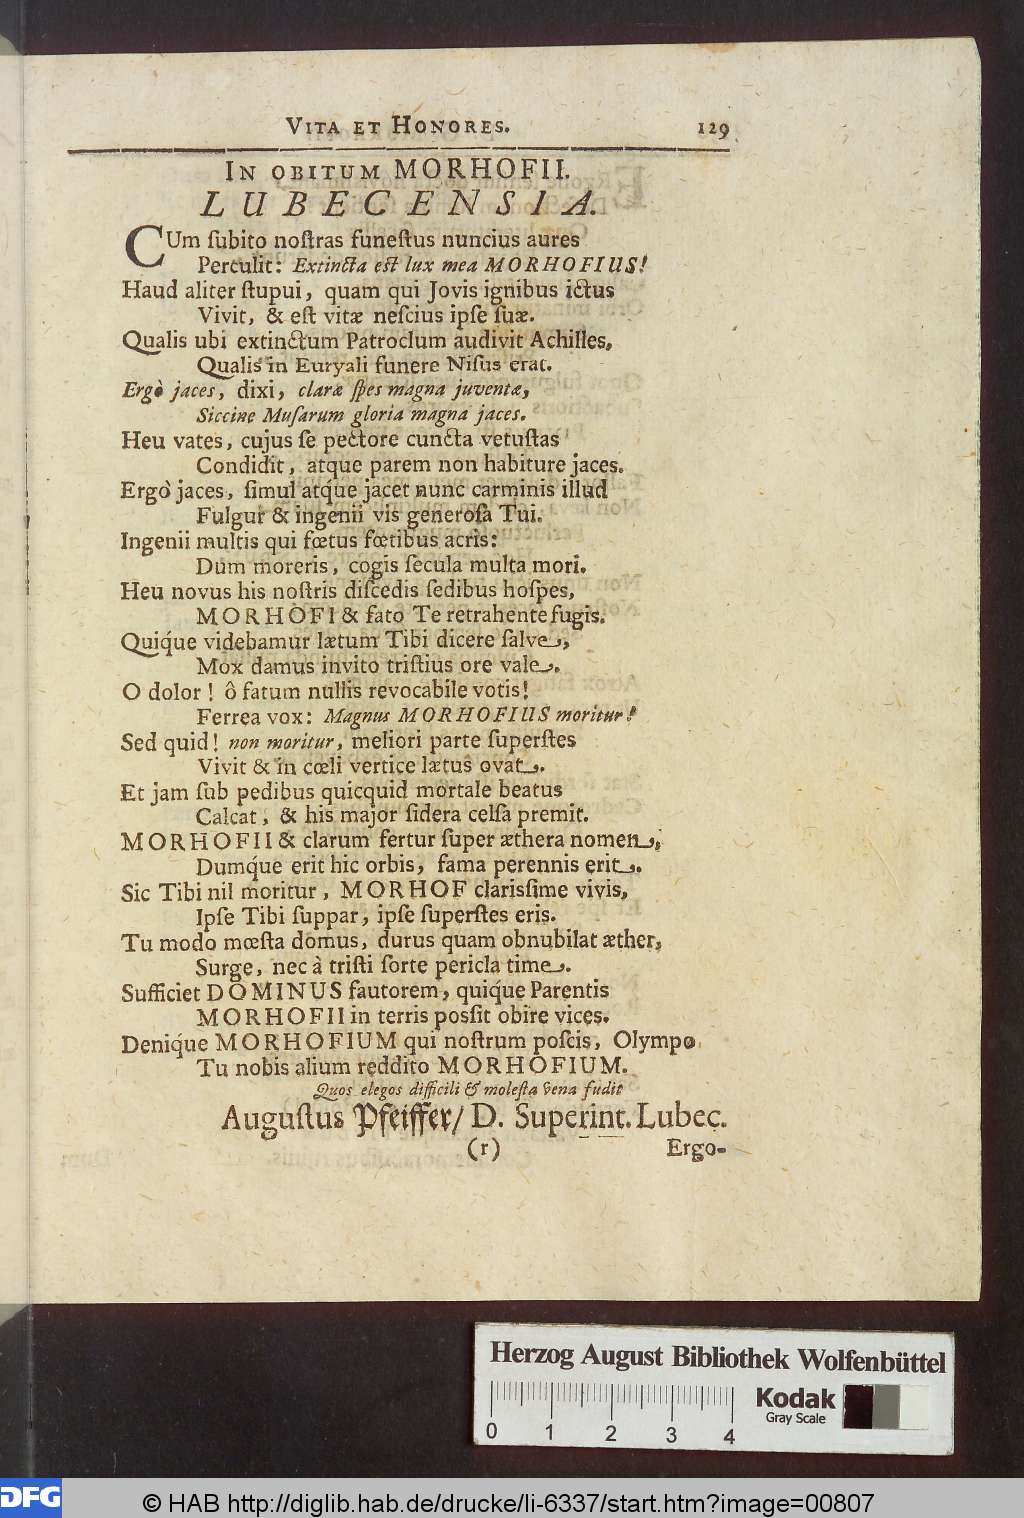 VITA ET HONORES. 129
IN OBITUM MORHOFII.
LUBECENSIA.
CUm ſubito noſtras funeſtus nuncius aures
Perculit: Extincta eſt lux mea MORHOFIUS!
Haud aliter ſtupui, quam qui Jovis ignibus ictus
Vivit, & eſt vitæ neſcius ipſe ſuæ.
Qualis ubi extinctum Patroclum audivit Achilles,
Qualis in Euryali funere Niſus erat.
Ergò jaces, dixi, claræ ſpes magna juventæ,
Siccine Muſarum gloria magna jaces.
Heu vates, cujus ſe pectore cuncta vetuſtas
Condidit, atque parem non habiture jaces.
Ergò jaces, ſimul atq́ue jacet nunc carminis illud
Fulgur & ingenii vis generoſa Tui.
Ingenii multis qui fœtus fœtibus acris:
Dum moreris, cogis ſecula multa mori.
Heu novus his noſtris diſcedis ſedibus hoſpes,
MORHOFI & fato Te retrahente fugis.
Quiq́ue videbamur lætum Tibi dicere ſalve,
Mox damus invito triſtius ore vale.
O dolor! ô fatum nullis revocabile votis!
Ferrea vox: Magnus MORHOFIUS moritur!
Sed quid! non moritur, meliori parte ſuperſtes
Vivit & in cœli vertice lætus ovat.
Et jam ſub pedibus quicquid mortale beatus
Calcat, & his major ſidera celſa premit.
MORHOFII & clarum fertur ſuper æthera nomen,
Dumq́ue erit hic orbis, fama perennis erit.
Sic Tibi nil moritur, MORHOF clarisſime vivis,
Ipſe Tibi ſuppar, ipſe ſuperſtes eris.
Tu modo mœſta domus, durus quam obnubilat æther,
Surge, nec à triſti ſorte pericla time.
Sufficiet DOMINUS fautorem, quiq́ue Parentis
MORHOFII in terris posſit obire vices.
Deniq́ue MORHOFIUM qui noſtrum poſcis, Olympo
Tu nobis alium reddito MORHOFIUM.
Quos elegos difficili & moleſta vena fudit
Auguſtus Pfeiffer/ D. Superint. Lubec.
(r) Ergo-
Herzog August Bibliothek Wolfenbüttel
Kodak
Gray Scale
0 1 2 3 4
DFG
© HAB http://diglib.hab.de/drucke/li-6337/start.htm?image=00807